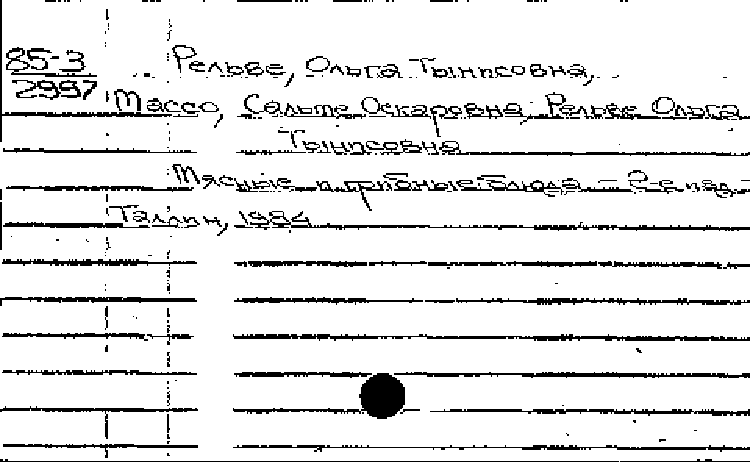 85-3
2997
Рельве, Ольга Тыниссовна,
Массо, Сальме Оскаровна, Рельве Ольга
Тыниссовна
Мясные и грибные блюда – 2-е изд. –
Таллин, 1984